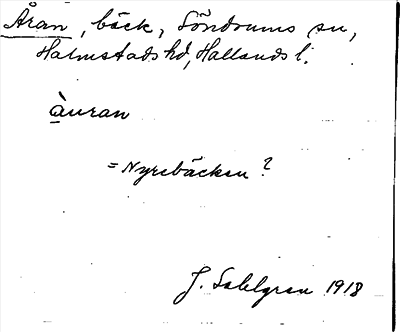 Åran, bäck, Söndrums sn,
Halmstads hd, Hallands l.
àuran
= Nyrebäcken?
J. Sahlgren 1918